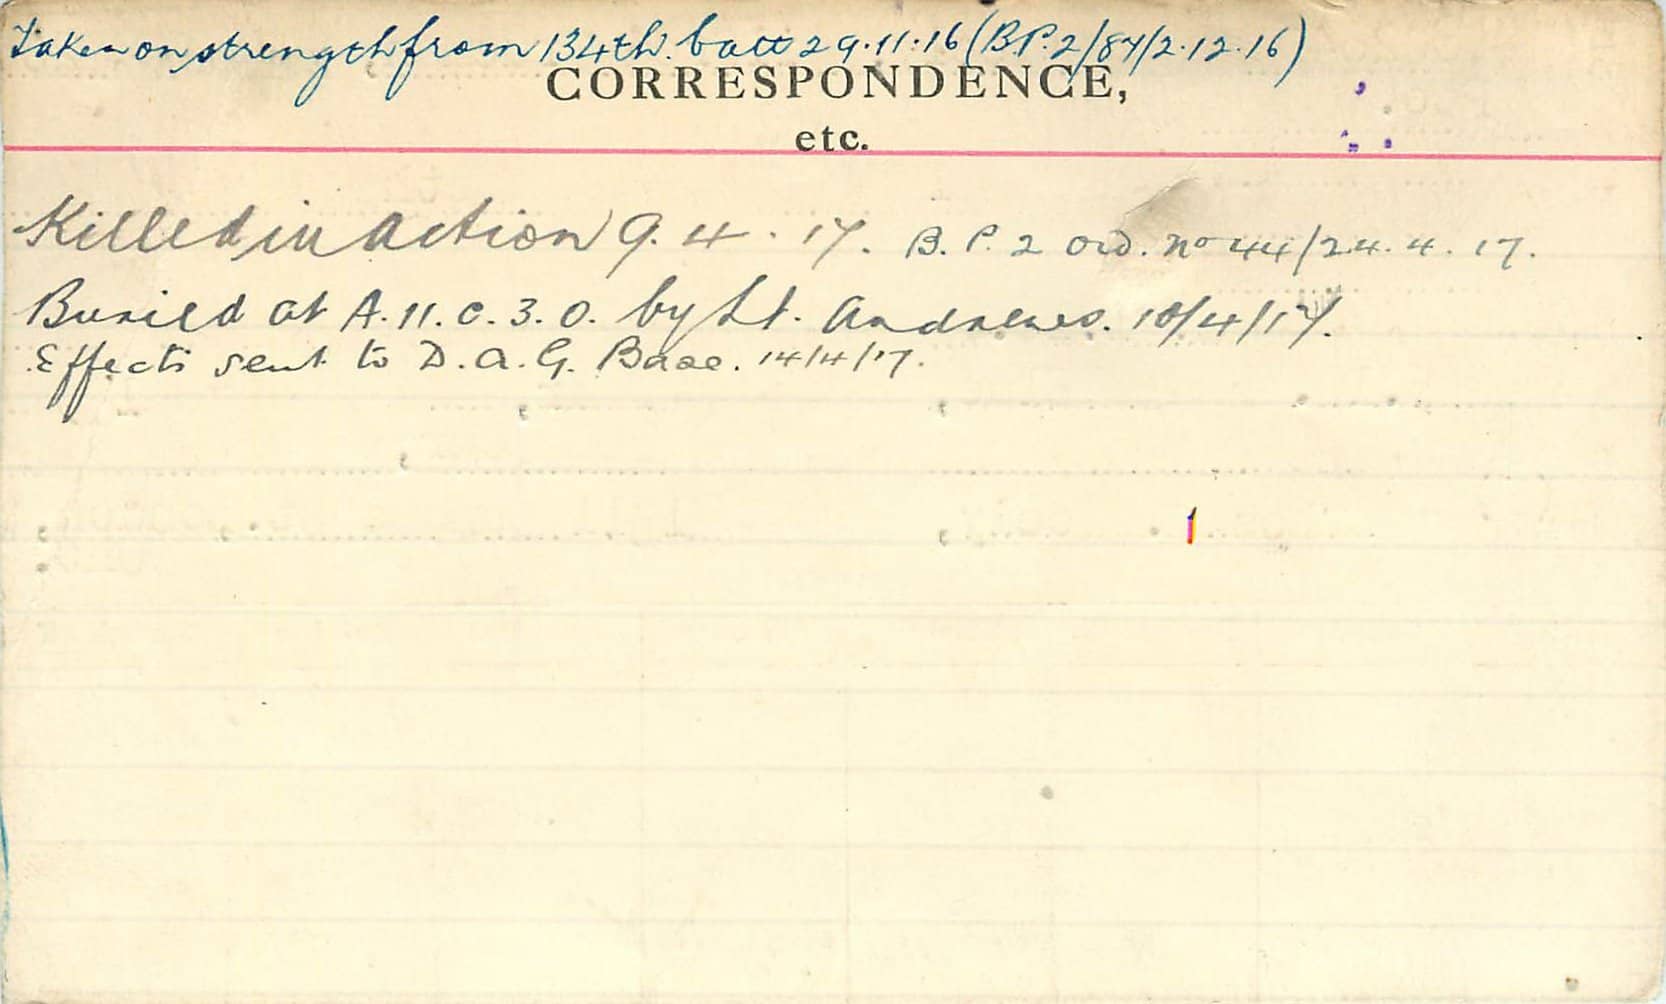 Taken on strength from 134th. batt 29.11.16 (B.P.2/87/2.12.16)
CORRESPONDENCE,
etc.
Killed in action 9.4.17. B.P.2 Ord. No 44/24.4.17.
Buried at A.11.c.3.0. by Lt. Andrews. 10/4/17.
Effects sent to D.A.G. Base. 14/4/17.